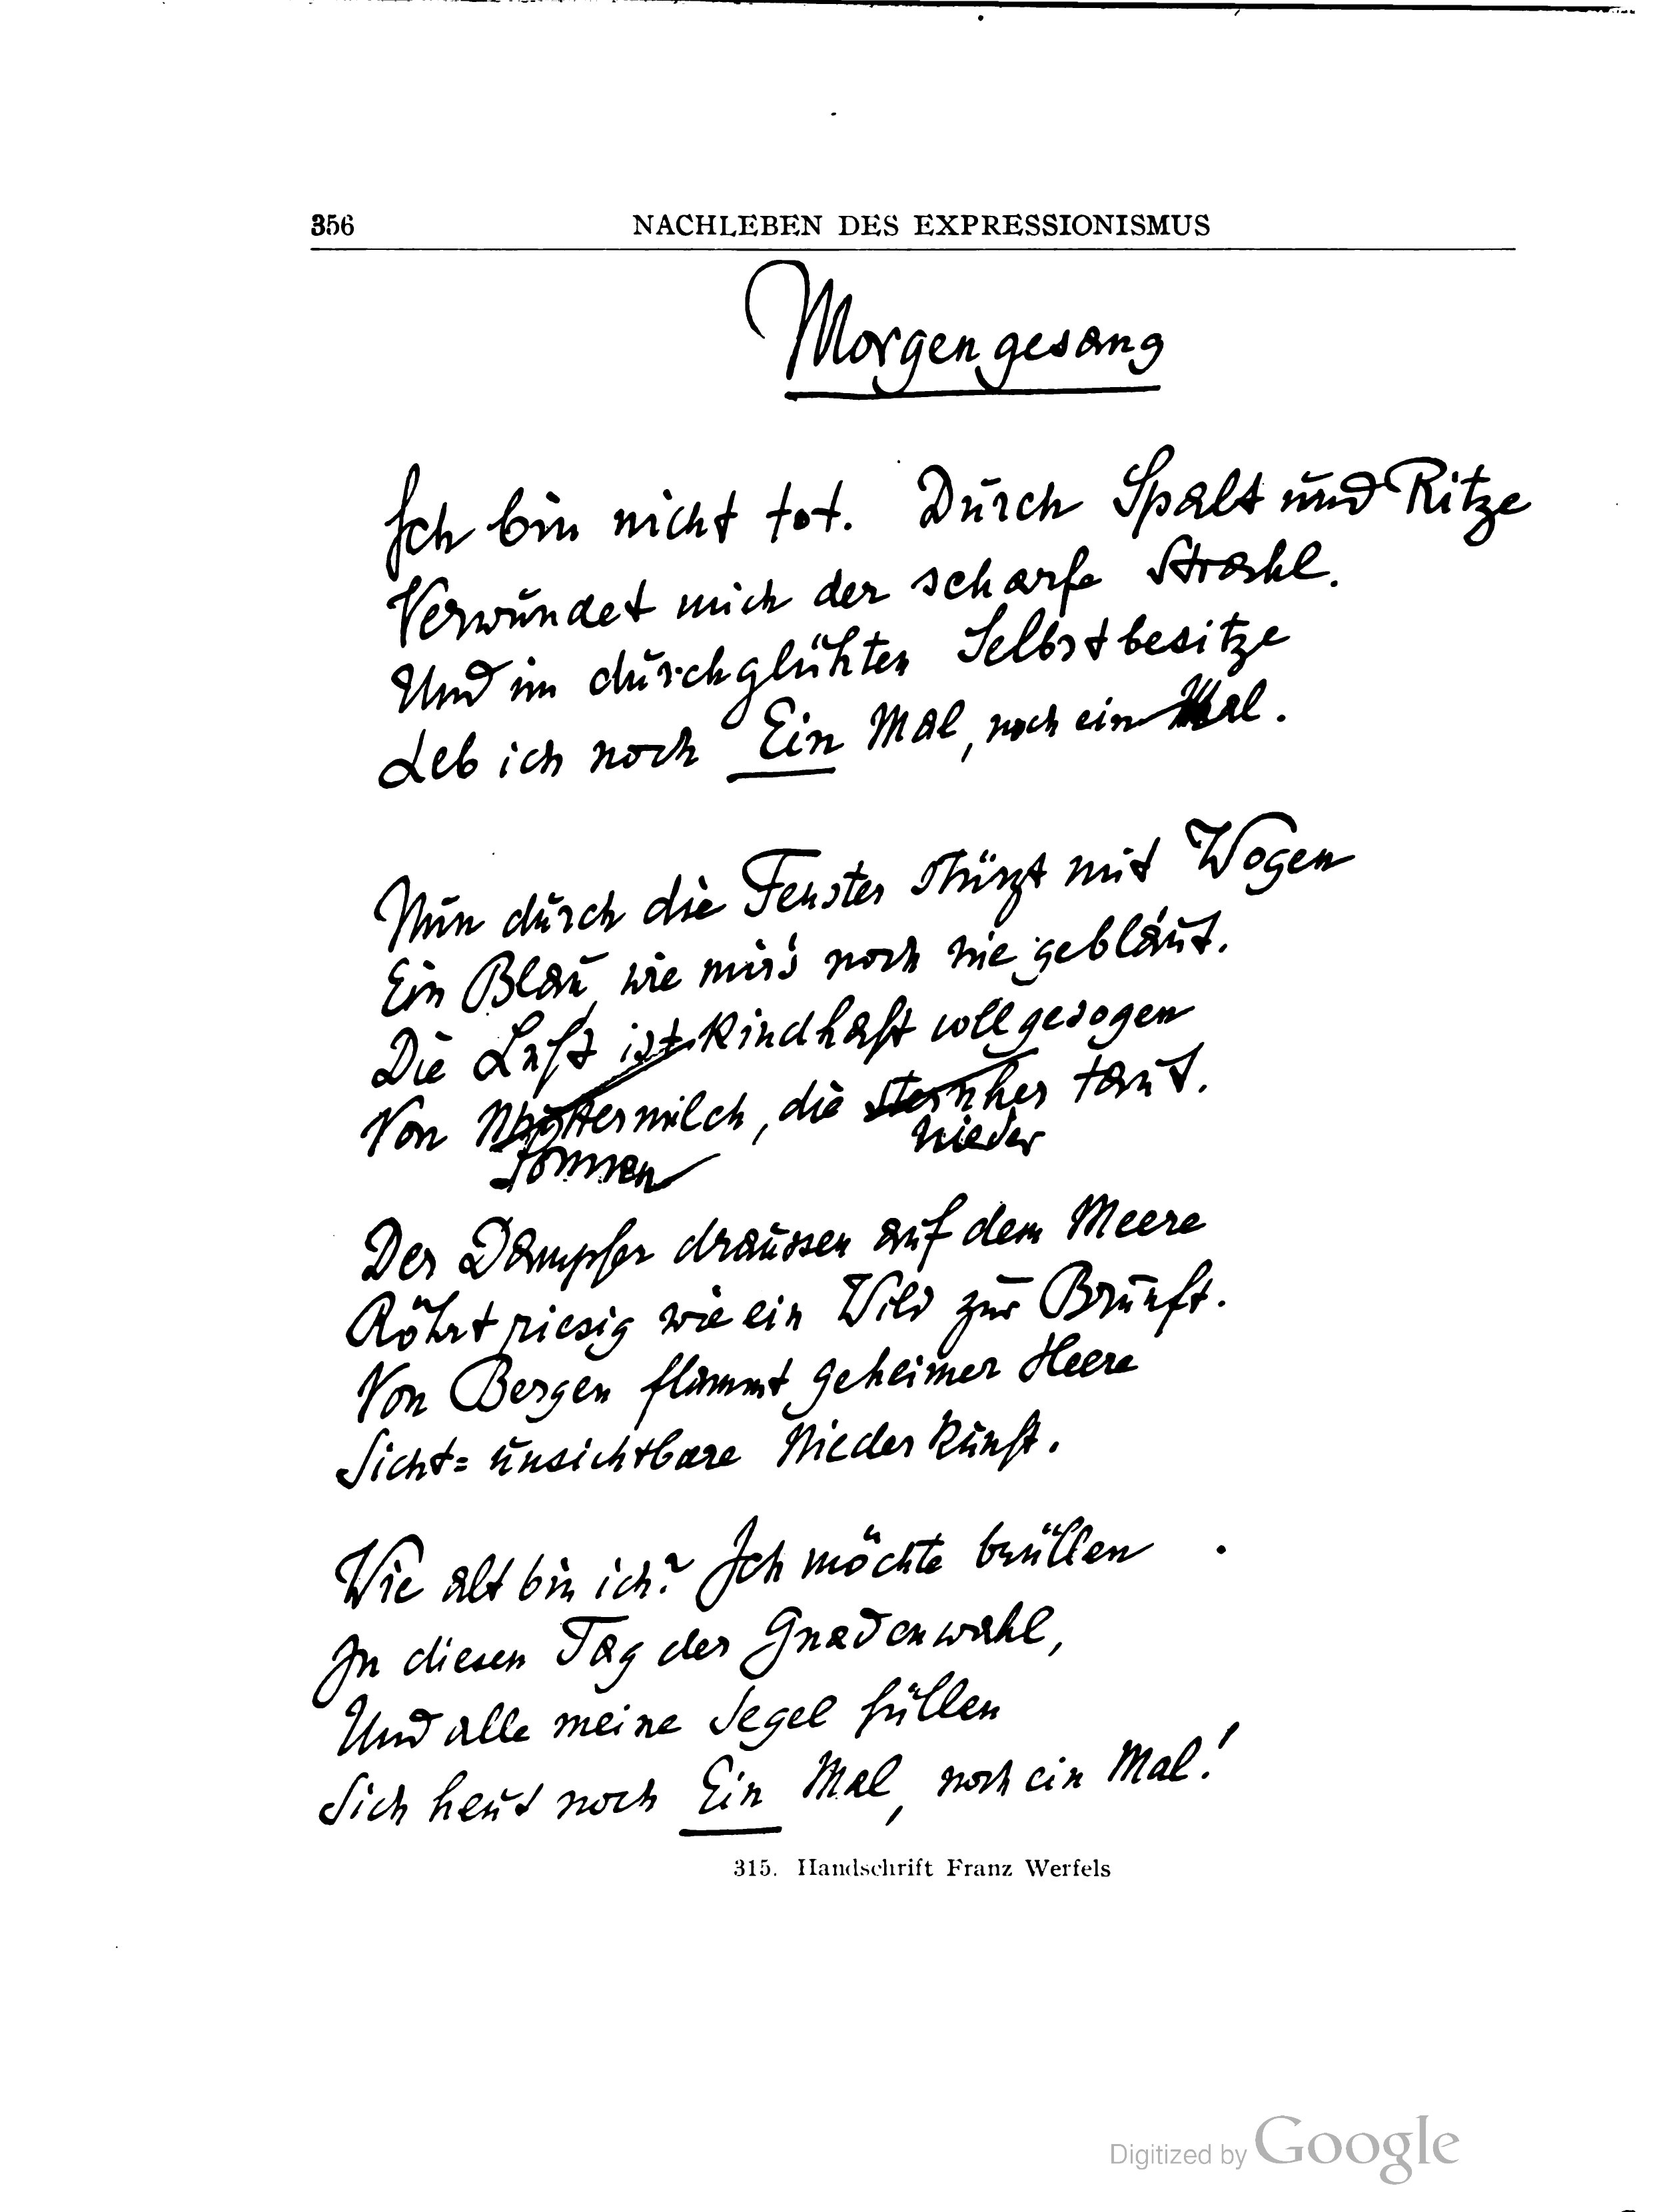 356 NACHLEBEN DES EXPRESSIONISMUS
Morgengesang
Ich bin nicht tot. Durch Spalt und Ritze
Verwundet mich der scharfe Strahl.
Und im durchglühten Selbstbesitze
Leb ich noch Ein Mal, noch ein Mal.
Nun durch die Fenster stürzt mit Wogen
Ein Blau, wie mir's noch nie gebläut.
Die Luft ist kindhaft vollgesogen
Von Muttermilch, die sternher taut.
Sonnen nieder
Der Dampfer draussen auf dem Meere
Röhrt riesig wie ein Wild zur Brunft.
Von Bergen flammt geheimer Heere
Sicht=unsichtbare Niederkunft.
Wie alt bin ich? Ich möchte brüllen
In diesen Tag der Gnadenwahl,
Und alle meine Segel füllen
Sich heut noch Ein Mal, noch ein Mal!
315. Handschrift Franz Werfels
Digitized by Google